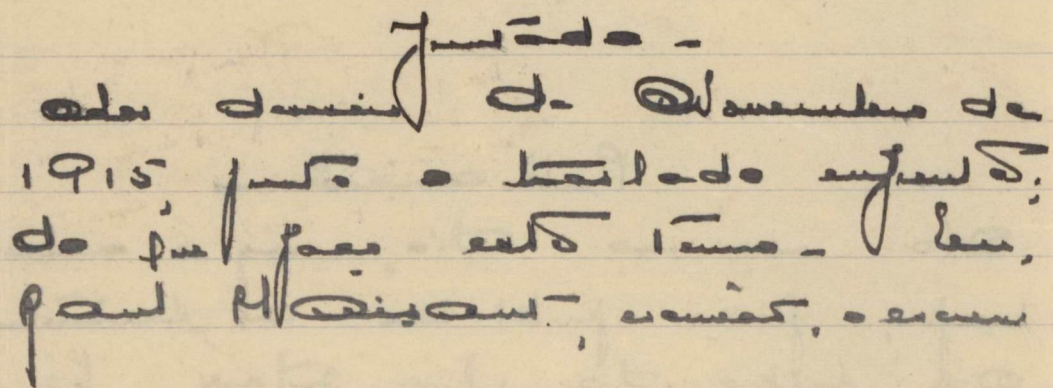 Juntada -
Aos dezeseis de Novembro de
1915, junto o traslado em frente;
do que faço este termo. Eu,
Paul escrivão, o escrevi